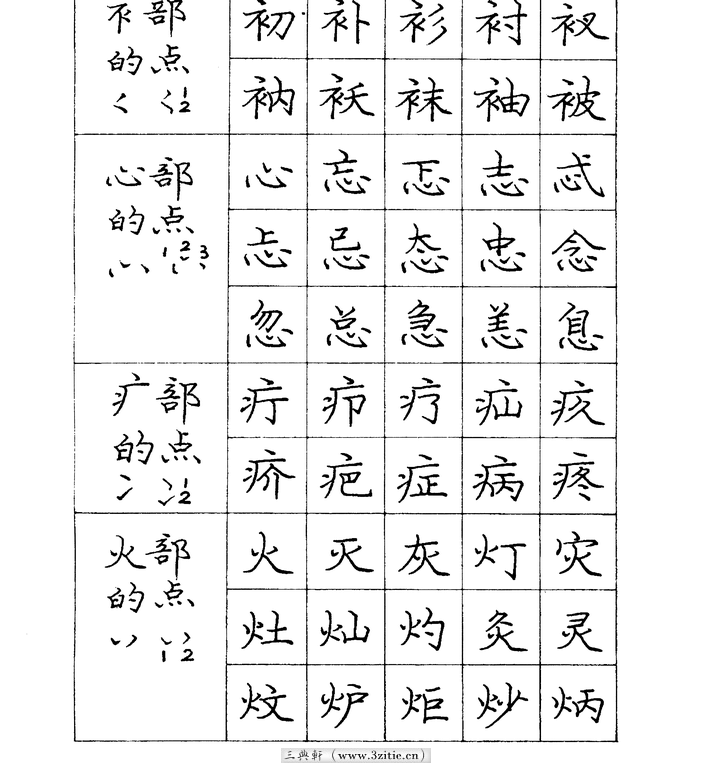 衤部
的点
1 2
初 补 衫 衬 衩
衲 袄 袜 袖 被
心部
的点
1 2 3
心 忘 忑 志 忒
忐 忌 态 忠 念
忽 总 急 恙 息
疒部
的点
1 2
疔 疖 疗 疝 疚
疥 疤 症 病 疼
火部
的点
1 2
火 灭 灰 灯 灾
灶 灿 灼 灸 灵
炆 炉 炬 炒 炳
三典軒（www.3zitie.cn）